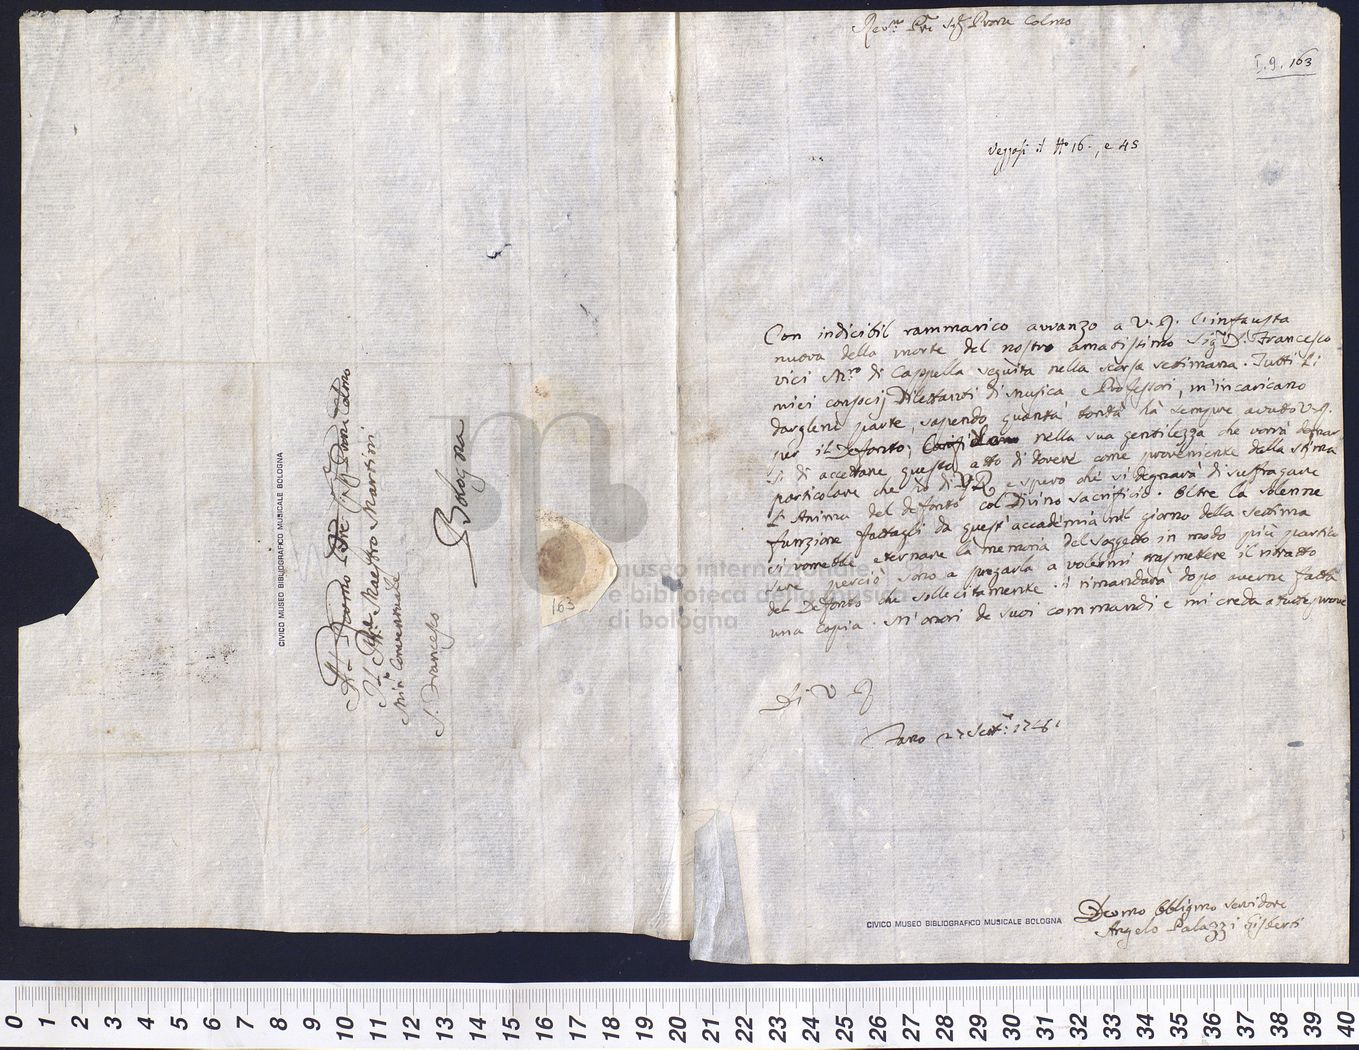 Rev.mo Pre Sig.r Pron Colmo
I.9.163
Veggasi il N.o 16., e 45
Con indicibil rammarico avvanzo a V. R. l'infausta
nuova della morte del nostro amatissimo Sig.r D. Francesco
vici M.ro di Cappella seguita nella scorsa settimana. Tutti li
miei consocij Dilettanti di Musica e Professori, m'incaricano
dargliene parte, sapendo quanta bontà hà sempre avuto V. R.
per il Defonto; nella sua gentilezza che vorrà degnar
si di accettare questo atto di dovere come proveniente della stima
particolare che hò di V. R. e spero che si degnarà di suffragare
L'Anima del defonto col Divino sacrificio. Oltre la solenne
funzione fattagli da quest'accademia nel giorno della settima
si vorrebbe eternare la memoria del soggetto in modo più partico
lare perciò sono a pregarla a volermi trasmettere il ritratto
del Defonto che sollecitamente il rimandarà dopo averne fatta
una copia. M'onori de suoi commandi e mi creda a tutte prove
Di V R
Fano 27 Sett.e 1746
Devmo Obligmo Servidore
Angelo Palazzi Gisberti
CIVICO MUSEO BIBLIOGRAFICO MUSICALE BOLOGNA
Al Revmo Pre Sig.r Pron Colmo
Il P.re Maestro Martini
Min.re Conventuale
S. Francesco
Bologna
CIVICO MUSEO BIBLIOGRAFICO MUSICALE BOLOGNA
163
museo internazionale
e biblioteca della musica
di bologna
0 1 2 3 4 5 6 7 8 9 10 11 12 13 14 15 16 17 18 19 20 21 22 23 24 25 26 27 28 29 30 31 32 33 34 35 36 37 38 39 40